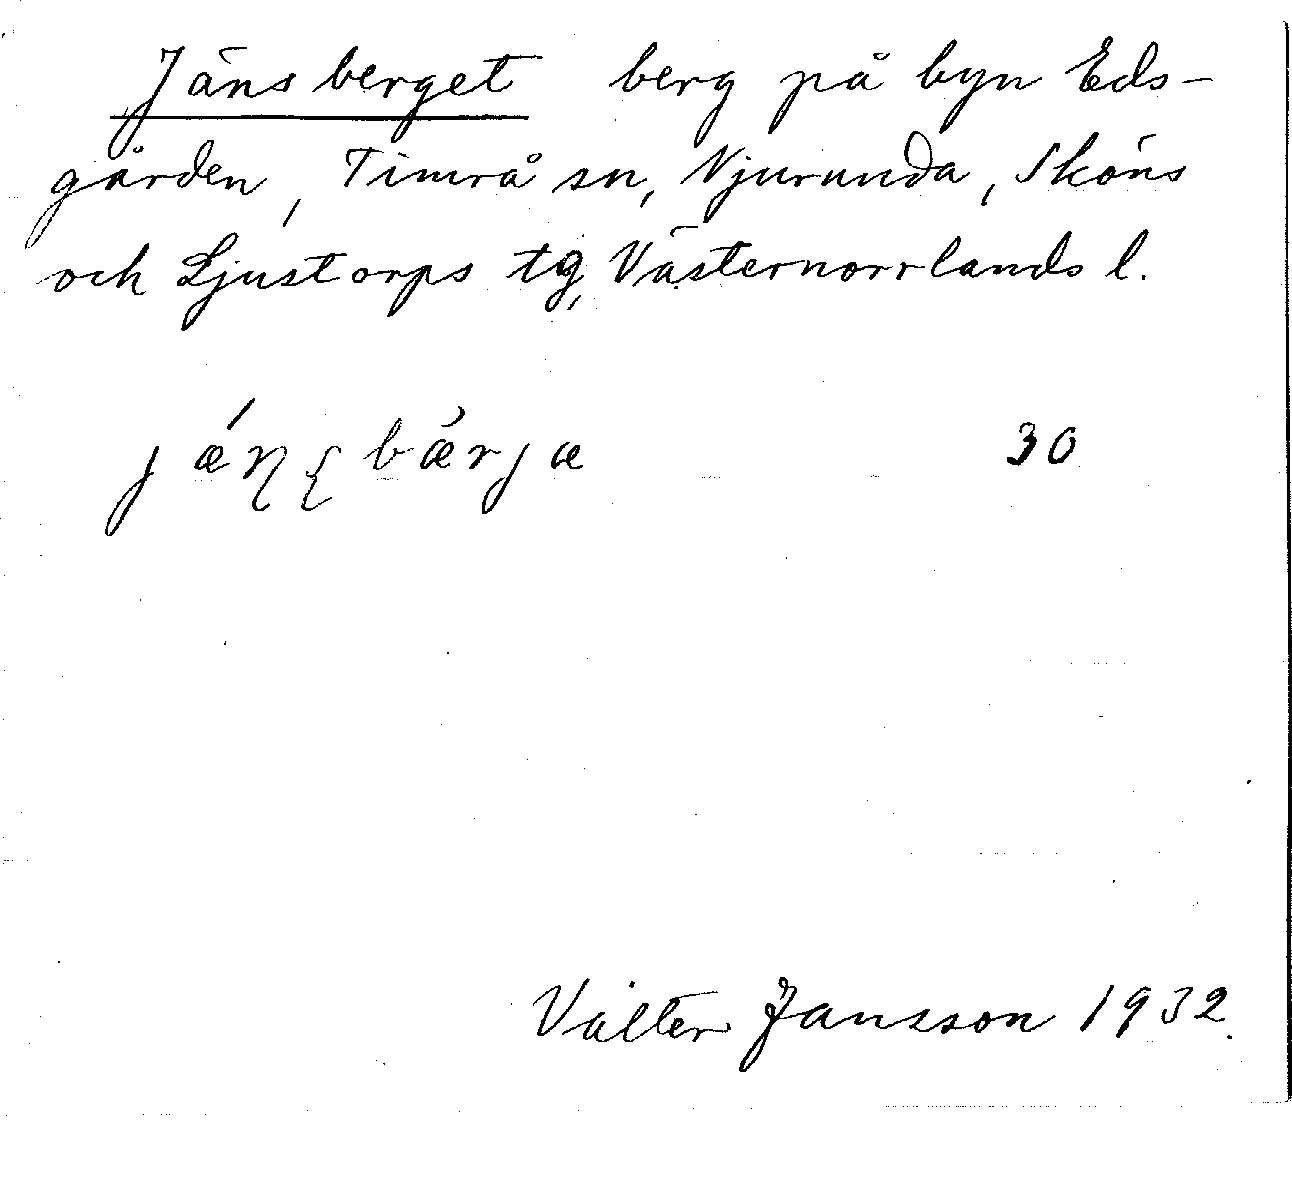 Jänsberget berg på byn Eds-
gården, Timrå sn, Njurunda, Sköns
och Ljustorps tg, Västernorrlands l.
jǽŋʂbæ̀rjæ 30
Valter Jansson 1932.